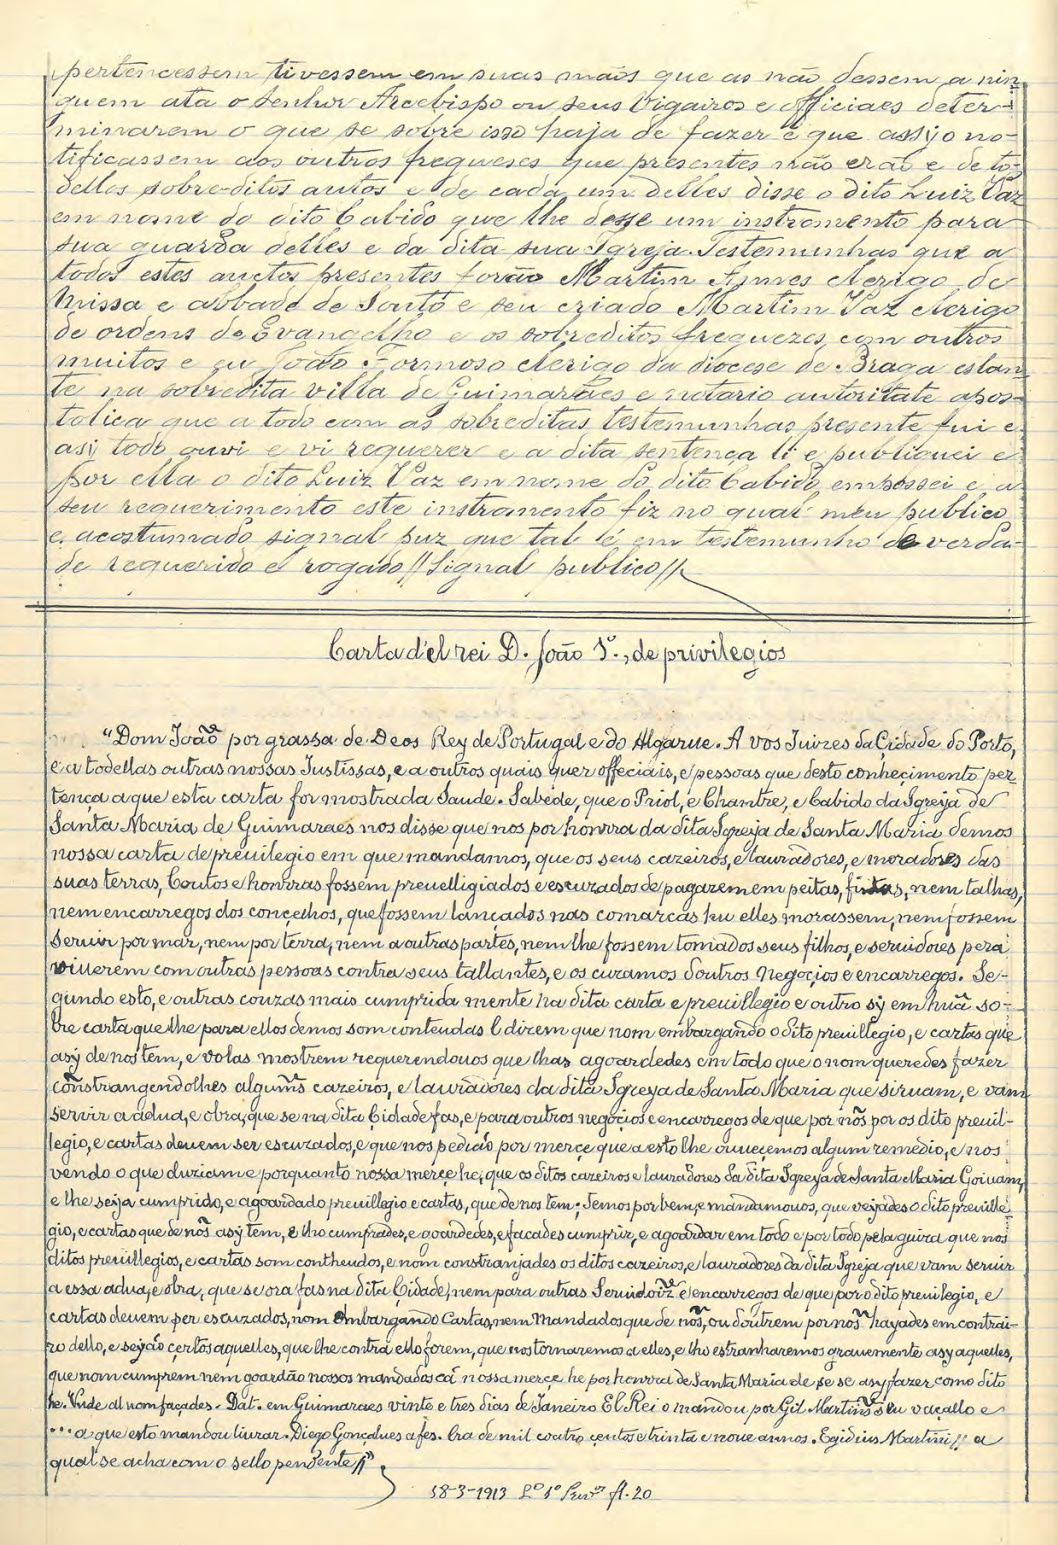 pertencessem tivessem em suas mãos que as não dessem a nin-
guem ata o Senhor Arcebispo ou seus Vigairos e officiaes deter-
minarem o que se sobre isso haja de fazer e que assijo no-
tificassem aos outros freguezes que presentes não erão e de to-
delles sobreditos autos e de cada um delles disse o dito Luiz Vaz
em nome do dito Cabido que lhe desse um instromento para
sua guarda delles e da dita sua Igreja. Testemunhas que a
todos estes auctos presentes forão Martim Annes clerigo de
Missa e abbade de Souto e seu criado Martim Vaz clerigo
de ordens de Evangelho e os sobreditos freguezes com outros
muitos e eu João Formoso clerigo da diocese de Braga estan-
te na sobredita villa de Guimarães e notario autoritate apos-
tolica que a todo com as sobreditas testemunhas presente fui e
asij todo ouvi e vi requerer e a dita sentença li e publiquei e
por ella o dito Luiz Vaz em nome do dito Cabido empossei e a
seu requerimento este instromento fiz no qual meu publico
e acostumado signal puz que tal é em testemunho de verda-
de requerido e rogado // Signal publico //
Carta d'el rei D. João 1º., de privilegios
"Dom João por grassa de Deos Rey de Portugal e do Algarue. A vos Juizes da Çidade do Porto,
e a todellas outras nossas Justissas, e a outros quais quer offeciais, e pessoas que desto conheçimento per-
tença a que esta carta for mostrada Saude. Sabede, que o Priol, e Chantre, e Cabido da Igreija de
Santa Maria de Guimaraes nos disse que nos por honrra da dita Igreija de Santa Maria demos
nossa carta de preuilegio em que mandamos, que os seus cazeiros, e lauradores, e moradores das
suas terras, Coutos e honrras fossem preuelligiados e escuzados de pagarem em peitas, fintas, nem talhas,
nem encarregos dos conçelhos, que fossem lancados nas comarcas hu elles morassem, nem fossem
seruir por mar, nem por terra, nem a outras partes, nem lhe fossem tomados seus filhos, e seruidores pera
viuerem com outras pessoas contra seus tallantes, e os cuzamos doutros negoçios e encarregos. Se-
gundo esto, e outras couzas mais cumprida mente na dita carta e preuillegio e outro sy em huã so-
bre carta que lhe para ellos demos som conteudas E dizem que nom embargando o dito preuillegio, e cartas que
asy de nos tem, e vo las mostrem requerendouos que lhas agoardedes em todo que o nom queredes fazer
constrangendolhes alguns cazeiros, e lauradores da dita Igreya de Santa Maria que siruam, e vam
servir a adua, e obra, que se na dita Çidade fas, e para outros negoçios e encarregos de que por nos por os dito preuil-
legio, e cartas deuem ser escuzados, e que nos pedião por merçe que a esto lhe ouueçemos algum remedio, e nos
vendo o que diziam e porquanto nossa merçe he, que os ditos cazeiros e lauradores da dita Igreya de Santa Maria Goiuam,
e lhe seija cumprido, e agoardado preuillegio e cartas, que de nos tem; Temos por bem, e mandamouos, que vejades o dito preuille-
gio, e cartas que de nos asy tem, e lho cumprades, e goardedes, e facades cumprir, e agoardar em todo e por todo pela guiza que nos
ditos preuillegios, e cartas som contheudos, e nom constranjades os ditos cazeiros, e lauradores da dita Igreja que vam seruir
a essa adua, e obra, que se ora fas na dita Çidade, nem para outras Seruidoes e encarregos de que por o dito preuilegio, e
cartas deuem per escuzados, nom embargando Cartas, nem Mandados que de nos, ou doutrem por nos hayades em contrai-
ro dello, e sejão çertos aquelles, que lhe contra ello forem, que nos tornaremos a elles, e lho estranharemos grauemente asy aquelles,
que nom cumprem nem goardão nossos mandados cá nossa merçe he por honrra de Santa Maria de se se asy fazer como dito
he. Unde al nom façades. Dat. em Guimaraes vinte e tres dias de Janeiro El Rei o mandou por Gil Martins seu vaçallo e
... a que esto mandou liurar. Diego Gonçalues a fes. Era de mil coatro çentos e trinta e noue annos. Egidius Martini // a
qual se acha com o sello pendente //"
18-3-1913 Lº 1º Privos fl. 20